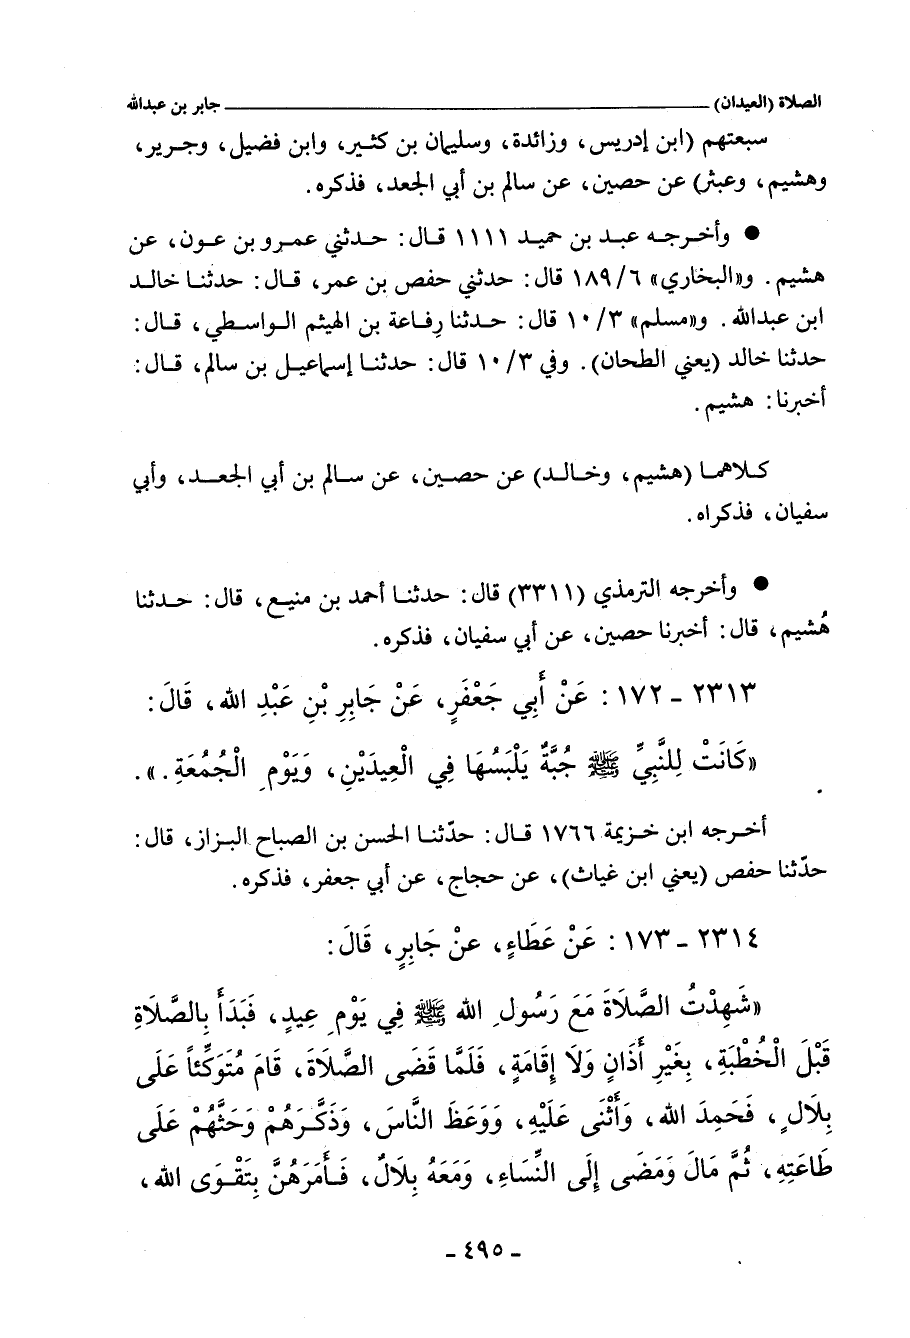 الصلاة (العيدان) ــــــــــــــــــــــــــــــــــــــــــــــــــــــــــــ جابر بن عبدالله
سبعتهم (ابن إدريس، وزائدة، وسليمان بن كثير، وابن فضيل، وجرير،
وهشيم، وعبثر) عن حصين، عن سالم بن أبي الجعد، فذكره.
● وأخرجه عبد بن حميد ١١١١ قال: حدثني عمرو بن عون، عن
هشيم. و«البخاري» ١٨٩/٦ قال: حدثني حفص بن عمر، قال: حدثنا خالد
ابن عبدالله. و«مسلم» ١٠/٣ قال: حدثنا رِفاعة بن الهيثم الواسطي، قال:
حدثنا خالد (يعني الطحان). وفي ١٠/٣ قال: حدثنا إسماعيل بن سالم، قال:
أخبرنا: هشيم.
كلاهما (هشيم، وخالد) عن حصين، عن سالم بن أبي الجعد، وأبي
سفيان، فذكراه.
● وأخرجه الترمذي (٣٣١١) قال: حدثنا أحمد بن منيع، قال: حدثنا
هُشيم، قال: أخبرنا حصين، عن أبي سفيان، فذكره.
٢٣١٣ - ١٧٢: عَنْ أَبِي جَعْفَرٍ، عَنْ جَابِرِ بْنِ عَبْدِ الله، قَالَ:
«كَانَتْ لِلنَّبِيِّ ﷺ جُبَّةٌ يَلْبَسُهَا فِي الْعِيدَيْنِ، وَيَوْمِ الْجُمُعَةِ.».
أخرجه ابن خزيمة ١٧٦٦ قال: حدّثنا الحسن بن الصباح البزاز، قال:
حدّثنا حفص (يعني ابن غياث)، عن حجاج، عن أبي جعفر، فذكره.
٢٣١٤ - ١٧٣: عَنْ عَطَاءٍ، عنْ جَابِرٍ، قَالَ:
«شَهِدْتُ الصَّلَاةَ مَعَ رَسُولِ الله ﷺ فِي يَوْمِ عِيدٍ، فَبَدَأَ بِالصَّلَاةِ
قَبْلَ الْخُطْبَةِ، بِغَيْرِ أَذَانٍ وَلَا إِقَامَةٍ، فَلَمَّا قَضَى الصَّلَاةَ، قَامَ مُتَوَكِّئاً عَلَى
بِلَالٍ، فَحَمِدَ الله، وَأَثْنَى عَلَيْهِ، وَوَعَظَ النَّاسَ، وَذَكَّرَهُمْ وَحَثَّهُمْ عَلَى
طَاعَتِهِ، ثُمَّ مَالَ وَمَضَى إِلَى النِّسَاءِ، وَمَعَهُ بِلَالٌ، فَأَمَرَهُنَّ بِتَقْوَى الله،
- ٤٩٥ -